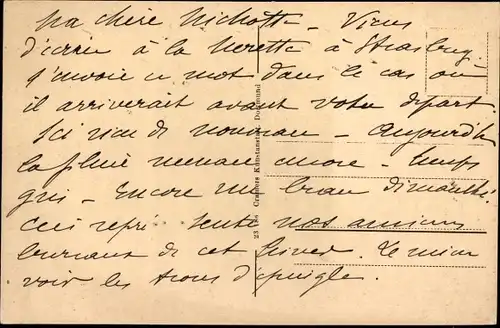 Ma chère Michotte - Viens
d'écrire à la Nerette à Strasbg.
J'envoie ce mot dans le cas où
il arriverait avant votre départ.
Ici rien de nouveau - Aujourd'h
la pluie menace encore - temps
gris - Encore un beau dimanche.
Ceci représente nos anciens
bureaux de cet hiver. Le mien
voir les trous d'épingle.
23 188 Cramers Kunstanstalt, Dortmund